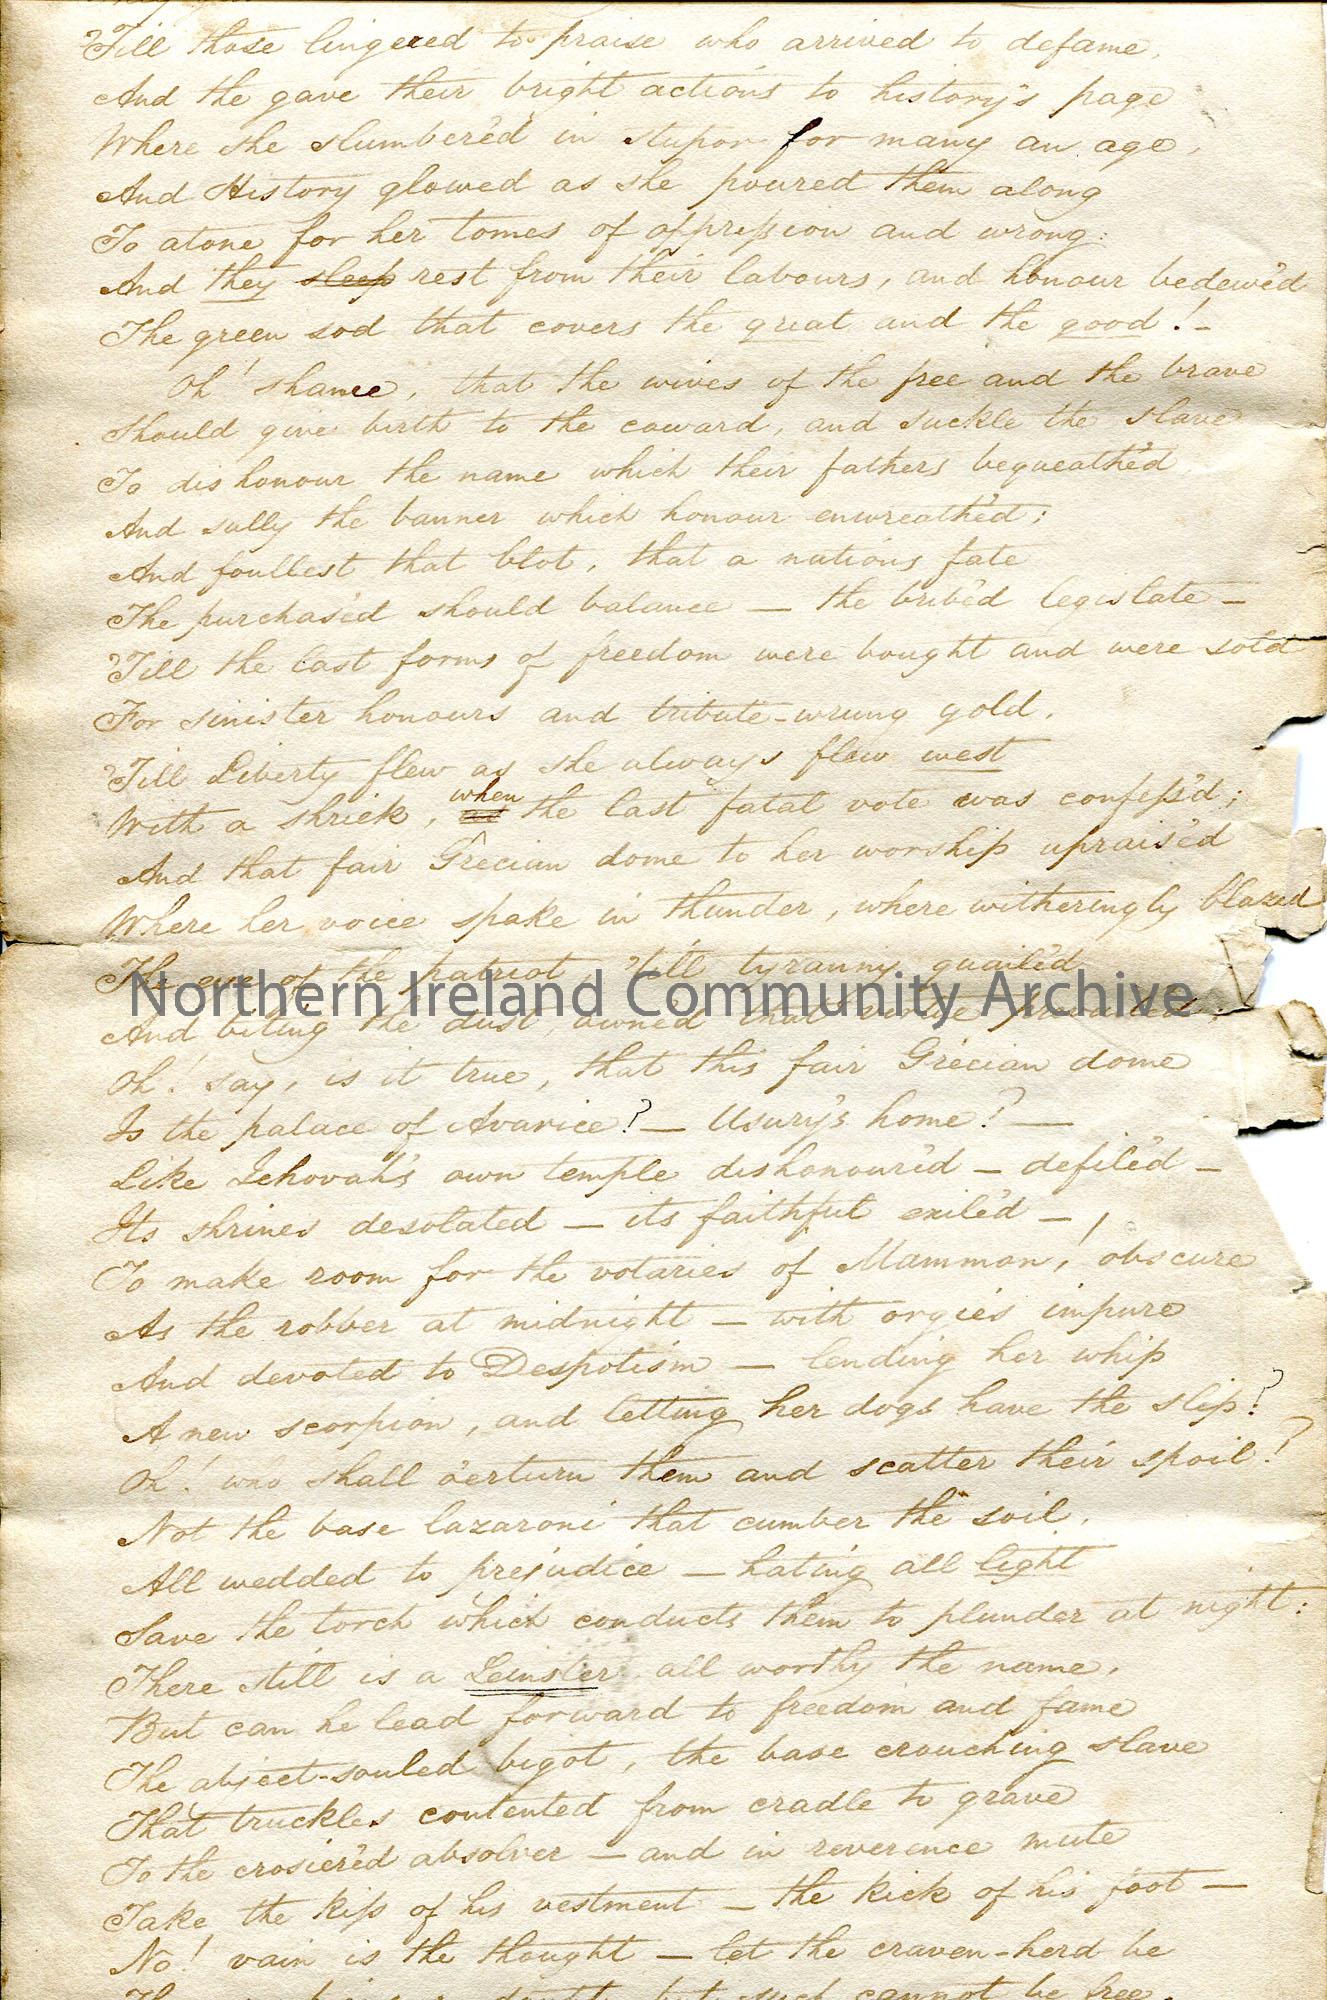 'Till those lingered to praise who arrived to defame,
And the gave their bright actions to history's page
Where she slumber'd in stupor for many an age,
And History glowed as she poured them along
To atone for her tomes of oppression and wrong:
And they sleep rest from their labours, and honour bedew'd
The green sod that covers the great and the good! –
Oh! shame, that the wives of the free and the brave
Should give birth to the coward, and suckle the slave
To dishonour the name which their fathers bequeath'd
And sully the banner which honour enwreath'd;
And foullest that blot, that a nations fate
The purchas'd should balance — the brib'd legislate –
'Till the last forms of freedom were bought and were sold
For sinister honours and tribute-wrung gold.
'Till Liberty flew as she always flew west
With a shriek, when the last fatal vote was confess'd;
And that fair Grecian dome to her worship uprais'd
Where her voice spake in thunder, where witheringly blazed
The eye of the patriot, 'till tyranny quail'd
And biting the dust, owned that virtue prevailed;
Northern Ireland Community Archive
Oh! say, is it true, that this fair Grecian dome
Is the palace of Avarice? — Usury's home? —
Like Jehovah's own temple dishonour'd – defil'd –
Its shrines desolated – its faithful exil'd – !
To make room for the votaries of Mammon! obscure
As the robber at midnight – with orgies impure
And devoted to Despotism — lending her whip
A new scorpion, and letting her dogs have the slip?
Oh! who shall o'erturn them and scatter their spoil?
Not the base lazaroni that cumber the soil,
All wedded to prejudice – hating all light
Save the torch which conducts them to plunder at night:
There still is a Leinster all worthy the name,
But can he lead forward to freedom and fame
The abject-souled bigot, the base crouching slave
That truckles contented from cradle to grave
To the crosier'd absolver – and in reverence mute
Take the kiss of his vestment – the kick of his foot –
No! vain is the thought – let the craven-herd be
but such cannot be free.